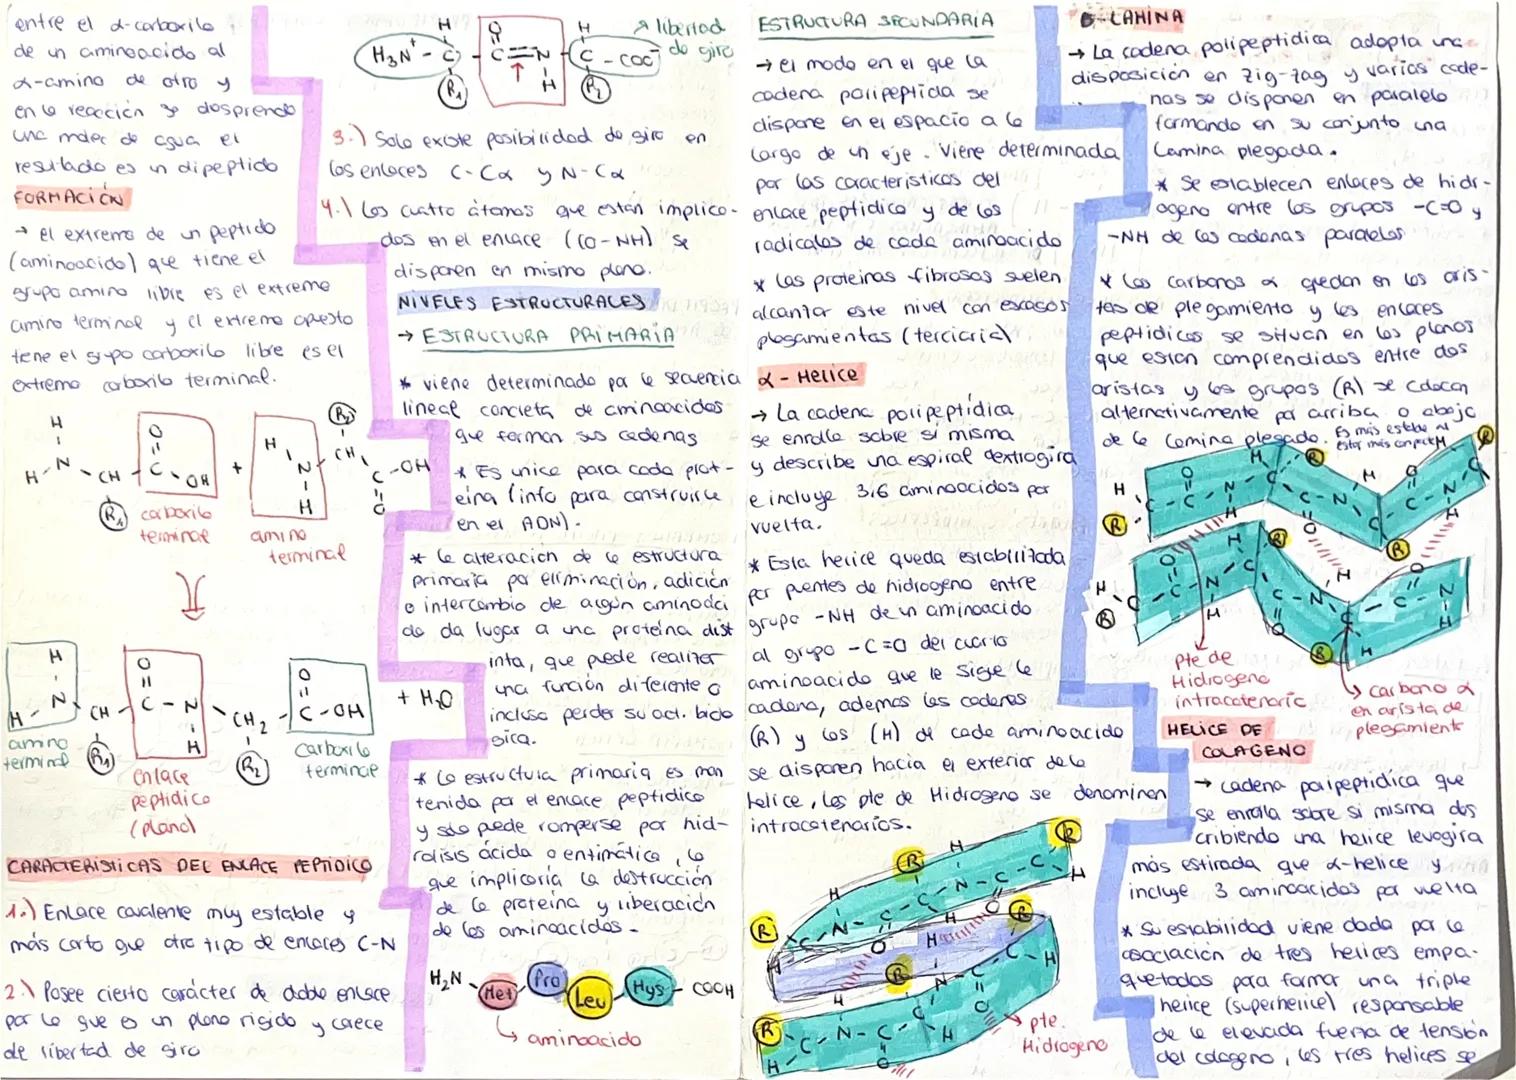 entre el α-carboxilo
de un aminoacido al
α-amino de otro y
en la reacción se desprende
una molec de agua el
resultado es un dipeptido
FORMACIÓN
→ el extremo de un peptido
(aminoacido) que tiene el
grupo amino libre es el extremo
amino terminal y el extremo opuesto
tiene el grupo carboxilo libre es el
extremo carboxilo terminal.
H
H - N - CH
R₁
O
C - OH
carboxilo
terminal
+
H
N
H
amino
terminal
R₂
CH
C - OH
O
H
H - N
amino
terminal
CH
R₁
O
C - N
H
enlace
peptídico
(plano)
CH₂
R₂
O
C - OH
carboxilo
terminal
+ H₂O
CARACTERISTICAS DEL ENLACE PEPTIDICO
1.) Enlace covalente muy estable y
más corto que otro tipo de enlaces C-N
2.) Posee cierto carácter de doble enlace
por lo que es un plano rigido y carece
de libertad de giro
H O H
H₃N⁺ - C - C = N - C - COO⁻
R₁ H R₂
libertad
de giro
3.) Solo existe posibilidad de giro en
los enlaces C-Cα y N-Cα
4.) Los cuatro átomos que están implica-
dos en el enlace (CO-NH) se
disponen en mismo plano.
NIVELES ESTRUCTURALES
→ ESTRUCTURA PRIMARIA
* viene determinado por la secuencia
lineal concreta de aminoacidos
que forman sus cadenas
* Es unica para cada prot-
eína (info para construirla
en el ADN).
* La alteración de la estructura
primaria por eliminación, adición
o intercambio de algún aminoáci
do da lugar a una proteína dist
inta, que puede realizar
una función diferente o
incluso perder su act. bioló
gica.
* La estructura primaria es man
tenida por el enlace peptidico
y solo puede romperse por hid-
rolisis ácida o enzimática, lo
que implicaría la destrucción
de la proteína y liberación
de los aminoacidos.
H₂N - Met Pro Leu Hys - COOH
↳ aminoacido
ESTRUCTURA SECUNDARIA
→ el modo en el que la
cadena polipeptida se
dispone en el espacio a lo
largo de un eje. Viene determinada
por las caracteristicas del
enlace peptidico y de los
radicales de cada aminoacido
* Las proteinas fibrosas suelen
alcanzar este nivel con escasos
plegamientas (terciaria)
α - Helice
→ La cadena polipeptídica
se enrolla sobre sí misma
y describe una espiral dextrogira
e incluye 3,6 aminoacidos por
vuelta.
* Esta helice queda estabilizada
por puentes de hidrogeno entre
grupo -NH de un aminoacido
al grupo -C=O del cuarto
aminoacido que le sigue la
cadena, ademas las cadenas
(R) y los (H) de cada aminoacido
se disponen hacia el exterior de la
helice, los pte de Hidrogeno se denominan
intracatenarios.
pte.
Hidrogeno
β-LAMINA
→ La cadena polipeptidica adopta una
disposición en zig-zag y varias cade-
nas se disponen en paralelo
formando en su conjunto una
Lamina plegada.
* Se establecen enlaces de hidr-
ogeno entre los grupos -C=O y
-NH de las cadenas paralelas
* Los carbonos α quedan en las aris-
tas de plegamiento y los enlaces
peptidicos se situan en los planos
que estan comprendidos entre dos
aristas y los grupos (R) se colocan
alternativamente por arriba o abajo
de la lamina plegada.
Es más estable al
estar más compact
pte de
Hidrogeno
intracatenaric
↳ carbono α
en arista de
plegamiento
HELICE DE
COLAGENO
→ cadena polipeptidica que
se enrolla sobre si misma des
cribiendo una helice levogira
más estirada que α-helice y
incluye 3 aminoacidos por vuelta
* Su estabilidad viene dada por la
asociación de tres helices empa-
quetados para formar una triple
helice (superhelice) responsable
de la elevada fuerza de tensión
del colageno, las tres helices se